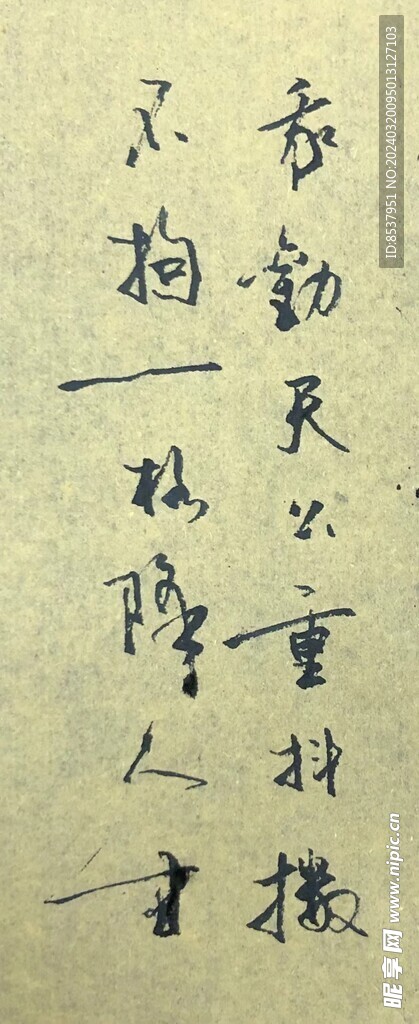 我勸天公重抖擻
不拘一格降人才
ID:8537951 NO:20240320095013127103
昵享网 www.nipic.cn